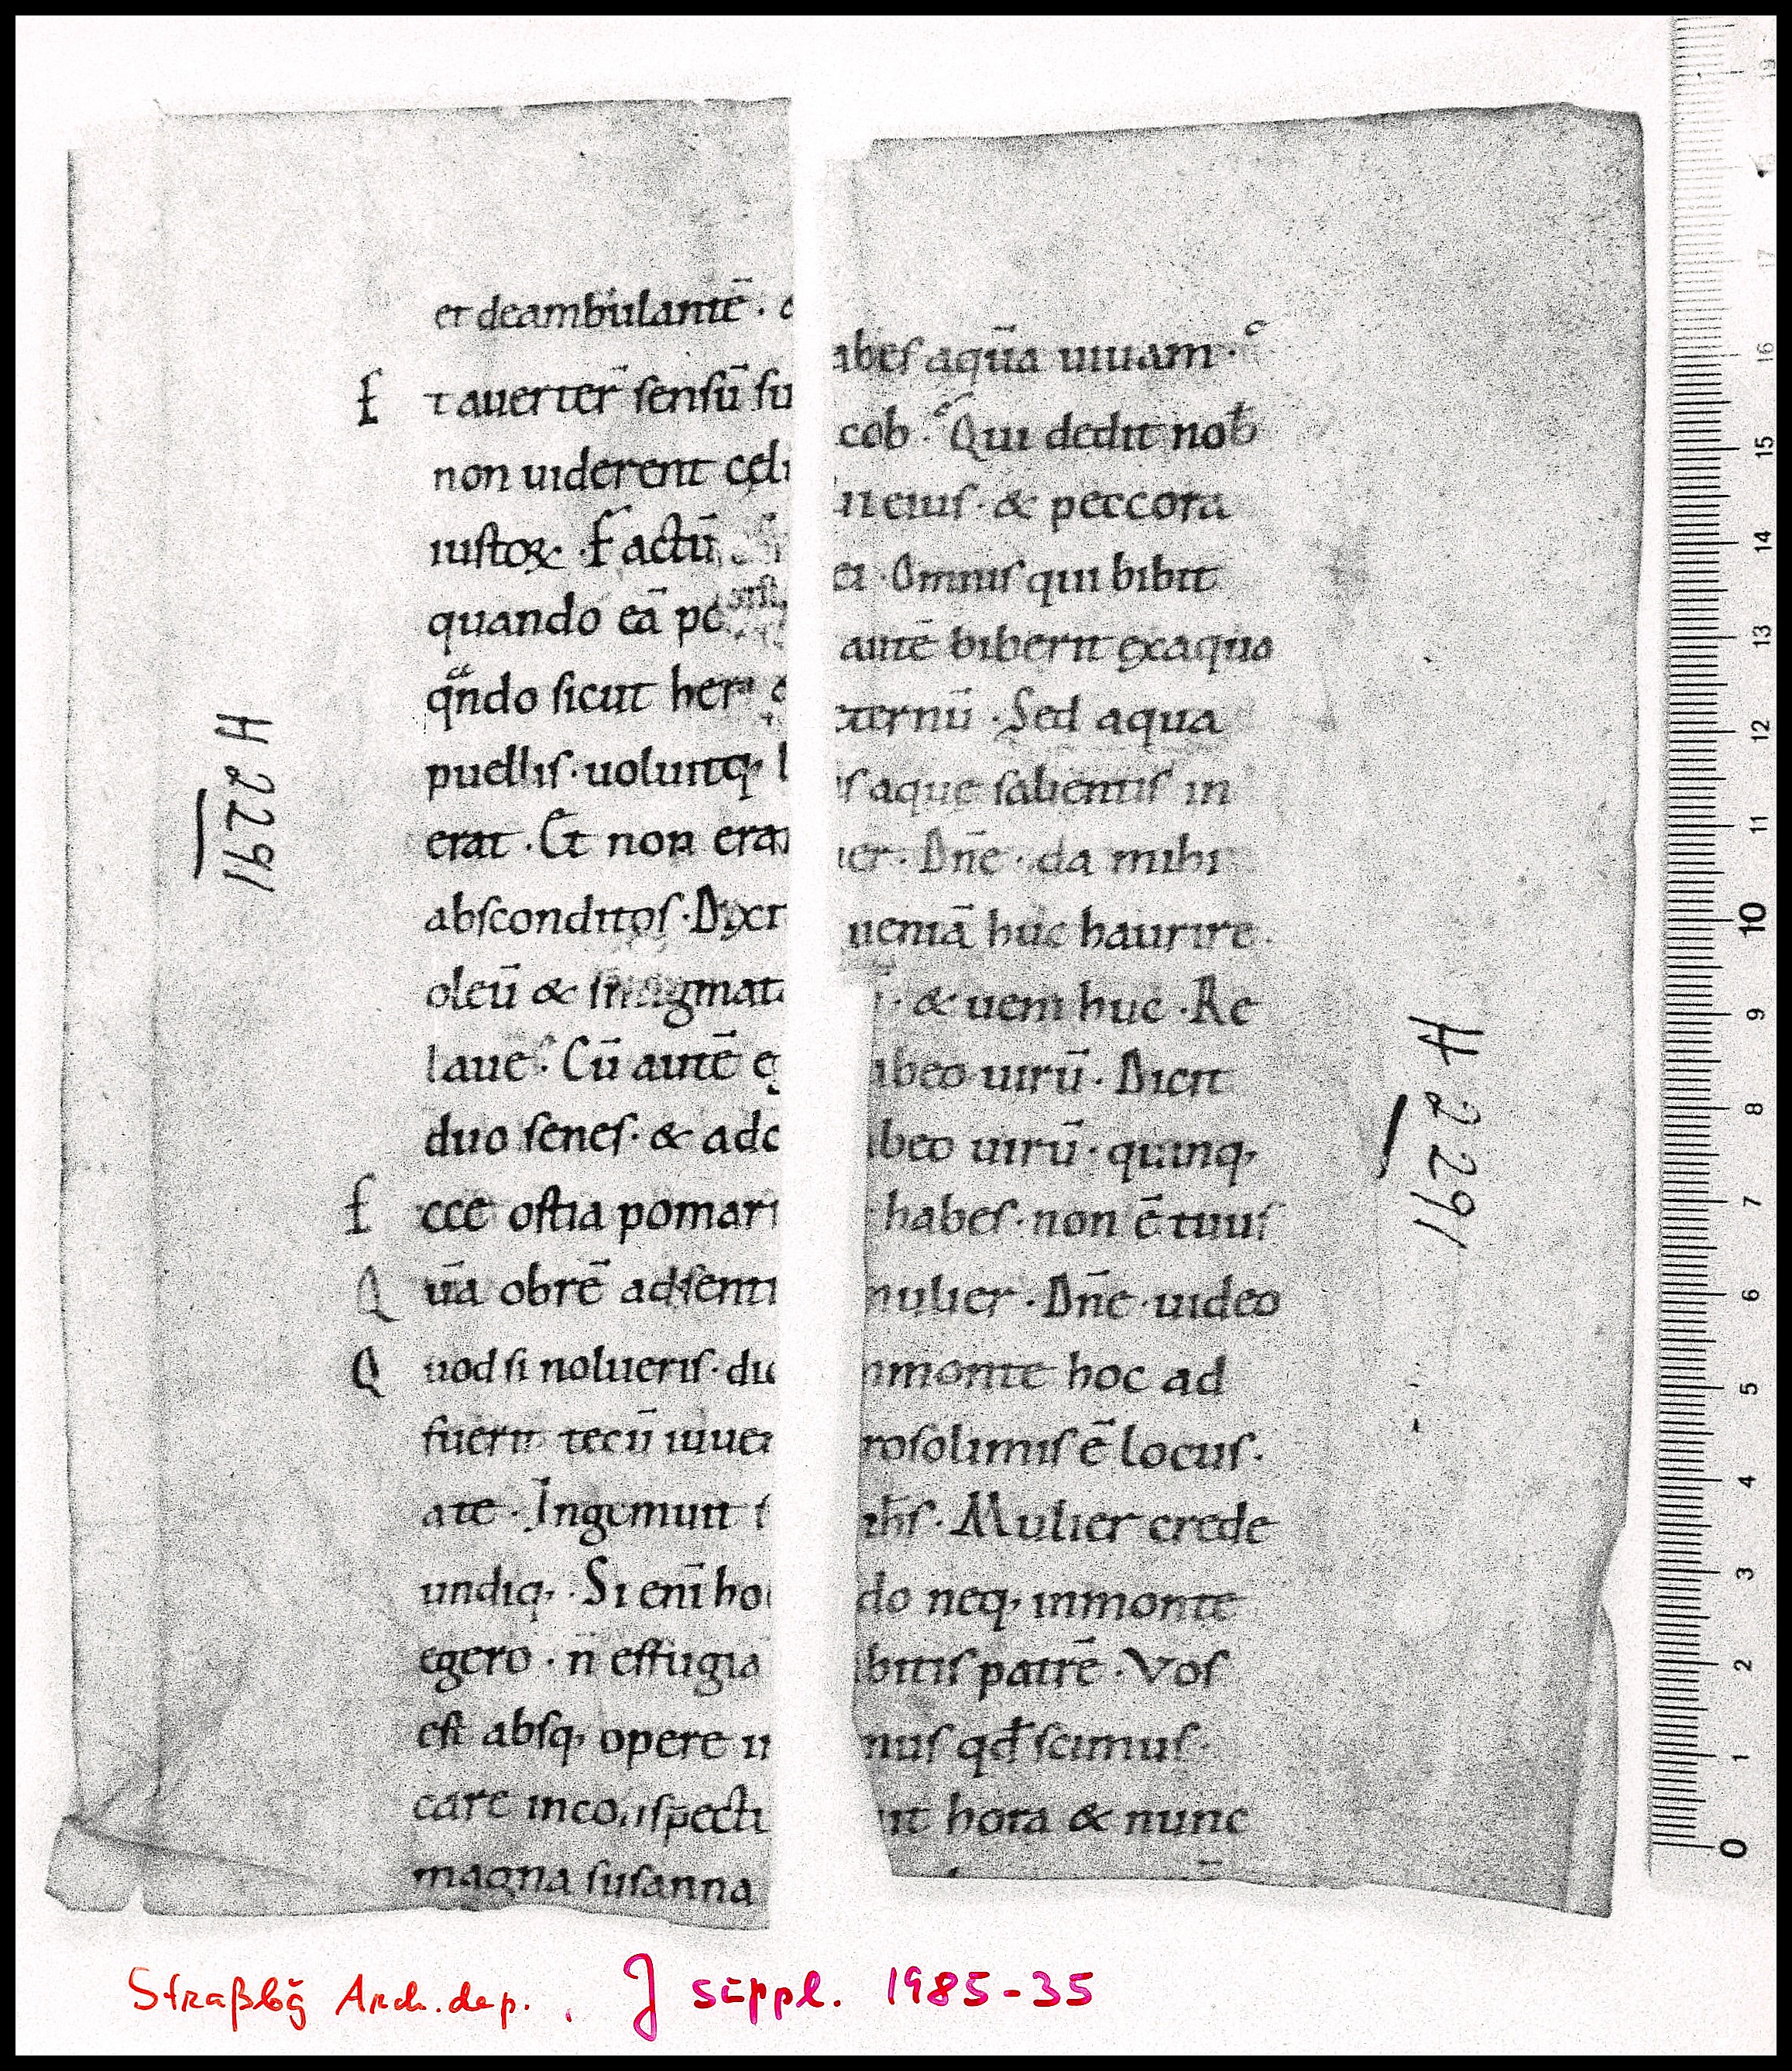 et deambulantē · 
E t auerter̄ sensū su
non uiderent celi
iustoꝝ · Factū
quando eā
qͣndo sicut her
puellis · uoluitq;
erat · Et non era
absconditos · Dixit
oleū & smigmata
laue · Cū autē eg
duo senes · & adc
E cce ostia pomari
Q ūa obrē adsenti
Q uod si nolueris · dic
fuerit tecū iuuen
ate · Ingemuit s
undiq; · Si enī hoc
egero · n̄ effugia
est absq; opere in
care inconspectu
magna susanna
abes aquā uiuam ·
cob · Qui dedit nob̄
ii eius · & peccora
ei · Omnis qui bibit
autē biberit exaqua
eternū · Sed aqua
is aque salientis in
ier · Dn̄e · da mihi
ueniā huc haurire ·
· & ueni huc · Re
abeo uirū · Dicit
abeo uirū · quinq;
habes · non ē tuus
mulier · Dn̄e · uideo
inmonte hoc ad
rosolimis ē locus ·
ihs̄ · Mulier crede
do neq; inmonte
bitis patrē · Vos
mus qđ scimus ·
it hora & nunc
H 2291
H 2291
10 9 8 7 6 5 4 3 2 1 0
11 12 13 14 15 16 17
Straßbg Arch. dep. , J suppl. 1985-35